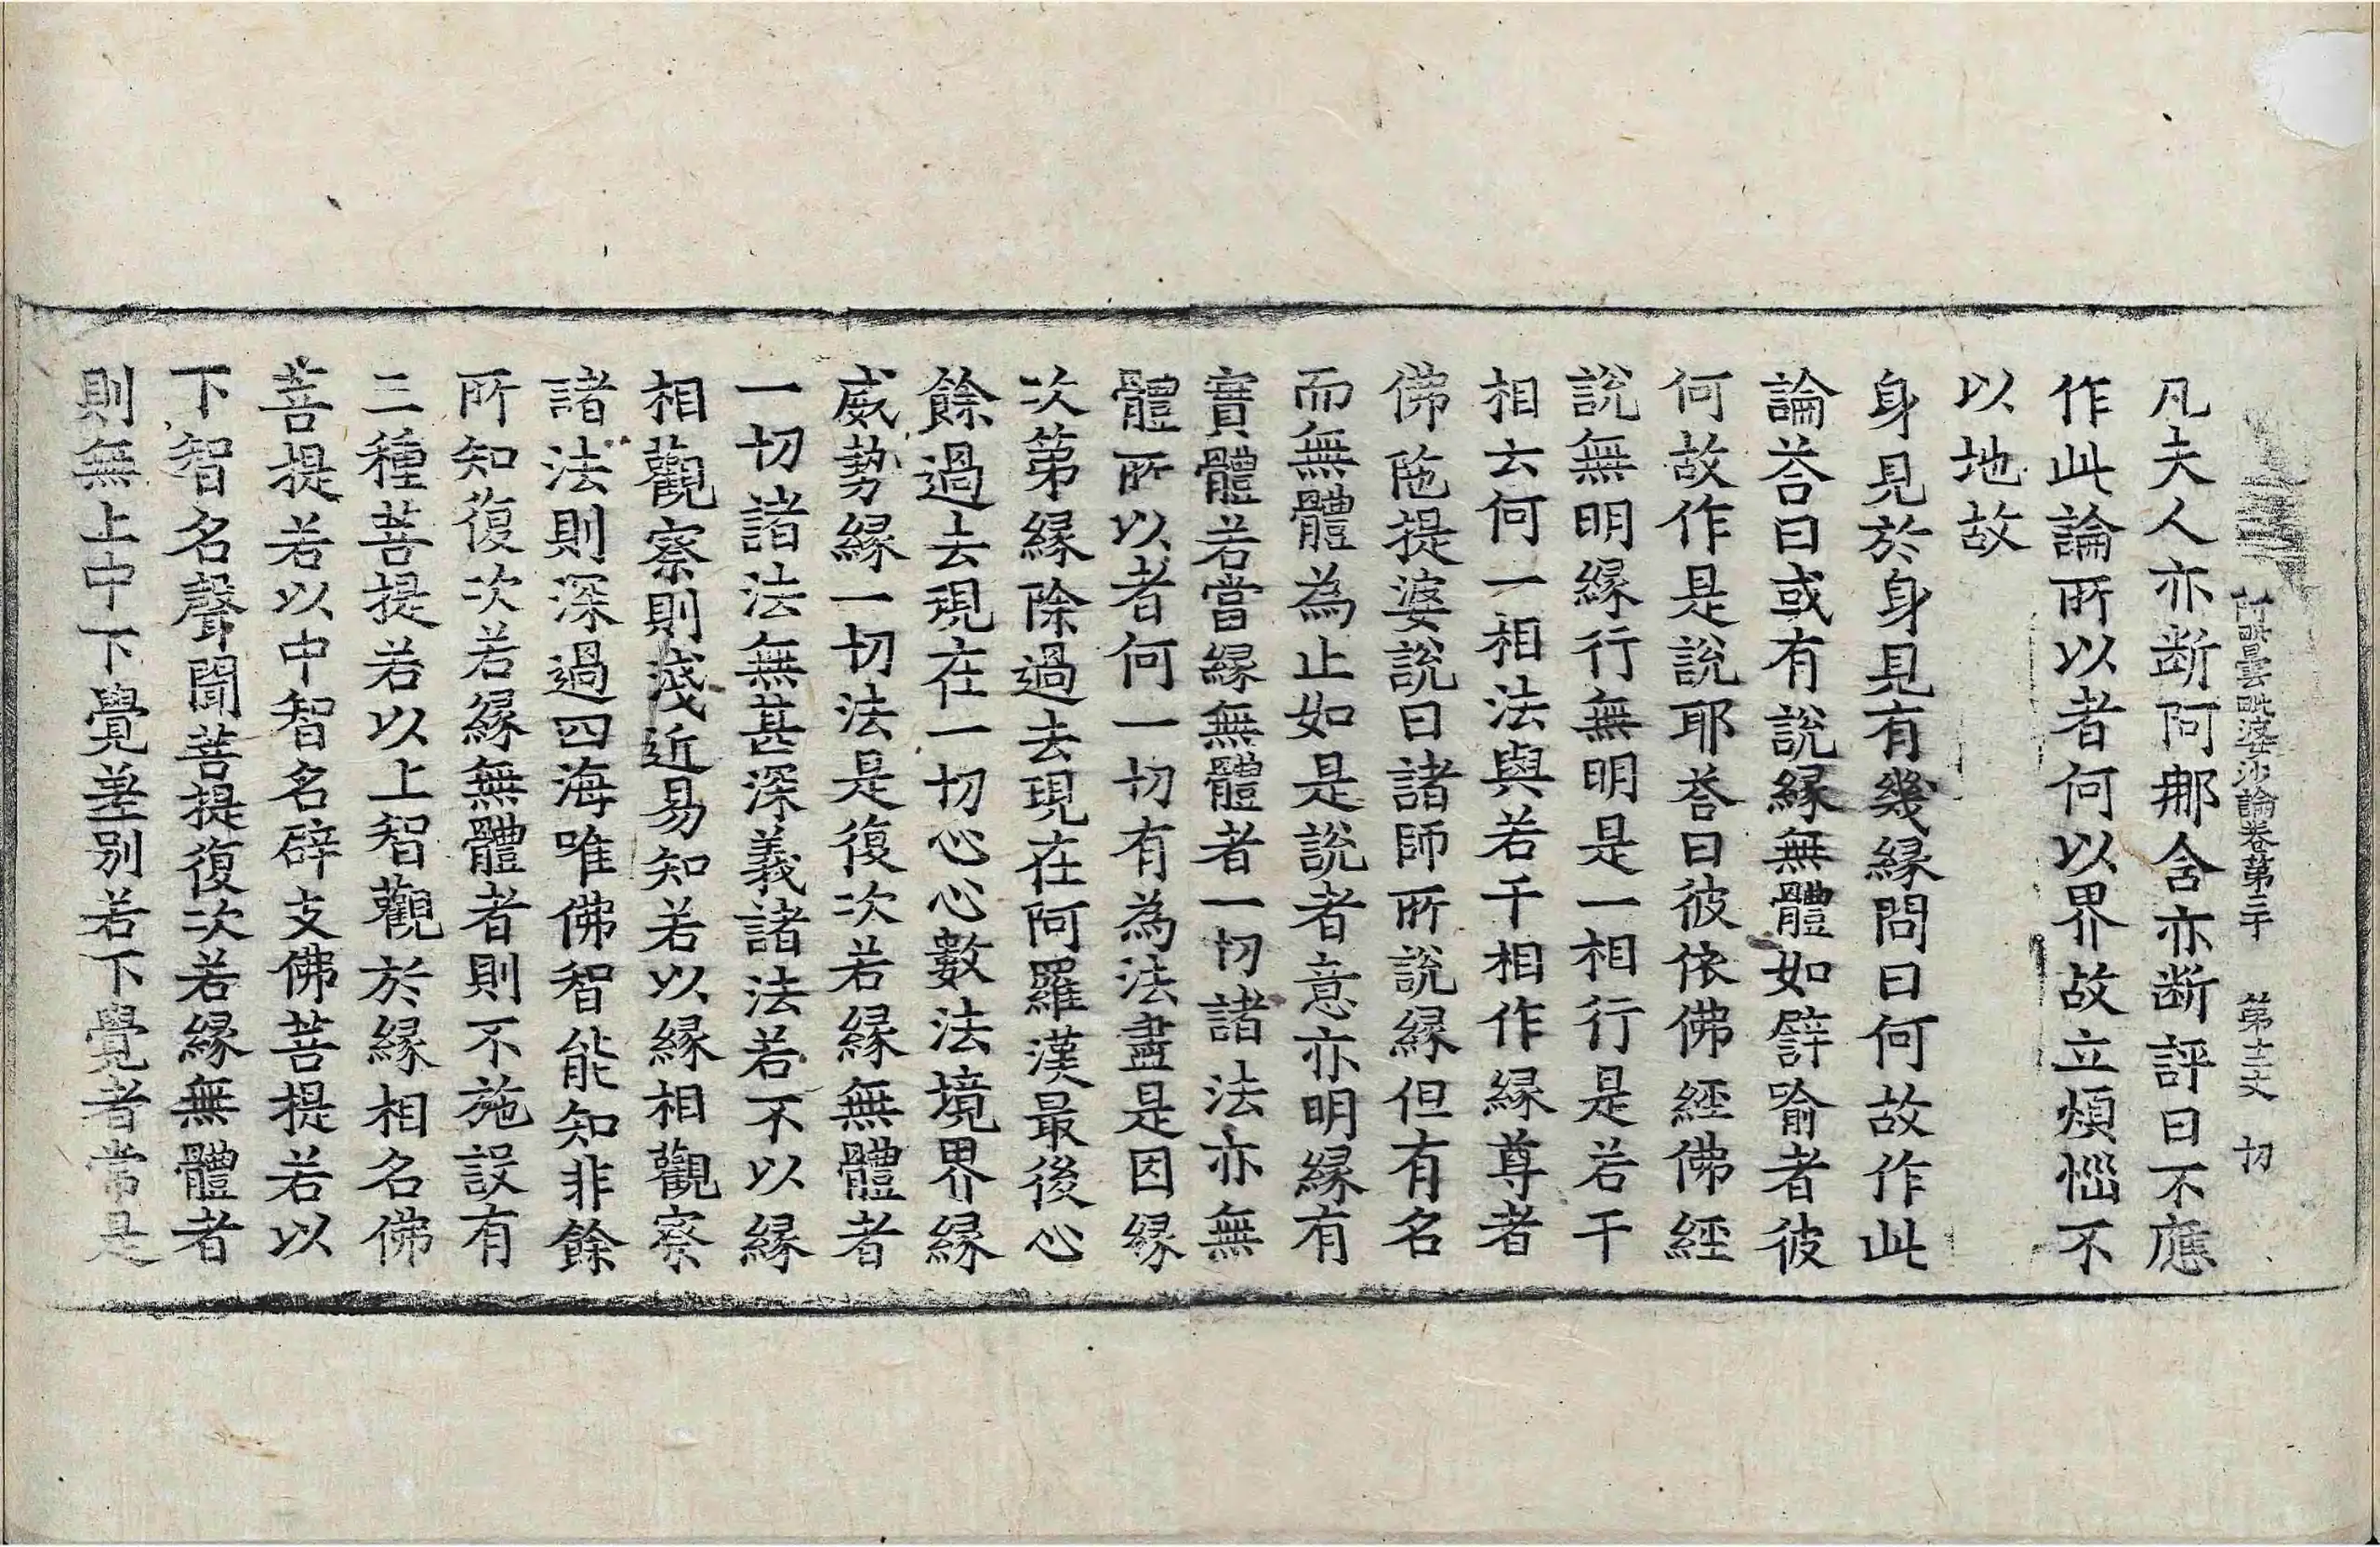 阿毗曇毗婆沙論卷第三十 第十三丈 切
凡夫人亦断阿那含亦断評曰不應
作此論所以者何以界故立煩惱不
以地故
身見於身見有幾縁問曰何故作此
論荅曰或有說縁無體如譬喻者彼
何故作是說耶荅曰彼依佛經佛經
說無明縁行無明是一相行是若干
相云何一相法與若干相作縁尊者
佛陁提婆說曰諸師所說縁但有名
而無體為止如是說者意亦明縁有
實體若當縁無體者一切諸法亦無
體所以者何一切有為法盡是因縁
次第縁除過去現在阿羅漢最後心
餘過去現在一切心心數法境界縁
威勢縁一切法是復次若縁無體者
一切諸法無甚深義諸法若不以縁
相觀察則淺近易知若以縁相觀察
諸法則深過四海唯佛智能知非餘
所知復次若縁無體者則不施設有
三種菩提若以上智觀於縁相名佛
菩提若以中智名辟支佛菩提若以
下智名聲聞菩提復次若縁無體者
則無上中下覺差別若下覺者常是